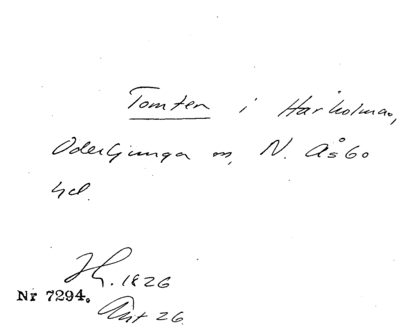 Tomten i Harholma,
Oderljunga sn, N. Åsbo
hd.
1826
Nr 7294.
Ant 26